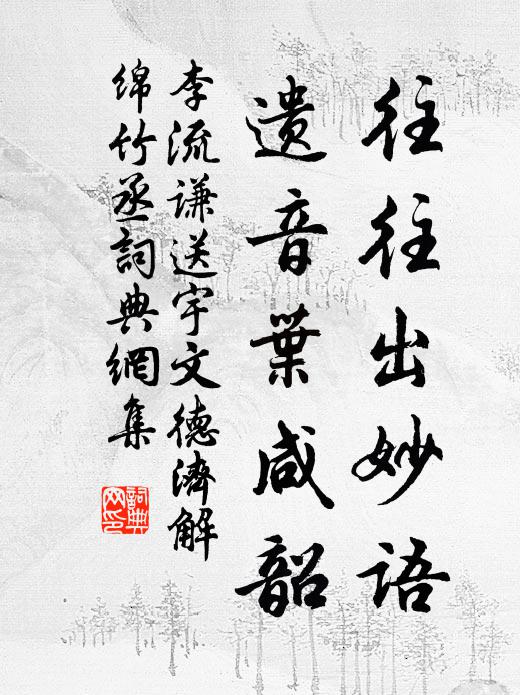 往往出妙语
遗音葉咸韶
李流谦送宇文德濟解
绵竹丞詞典網集
詞典网印